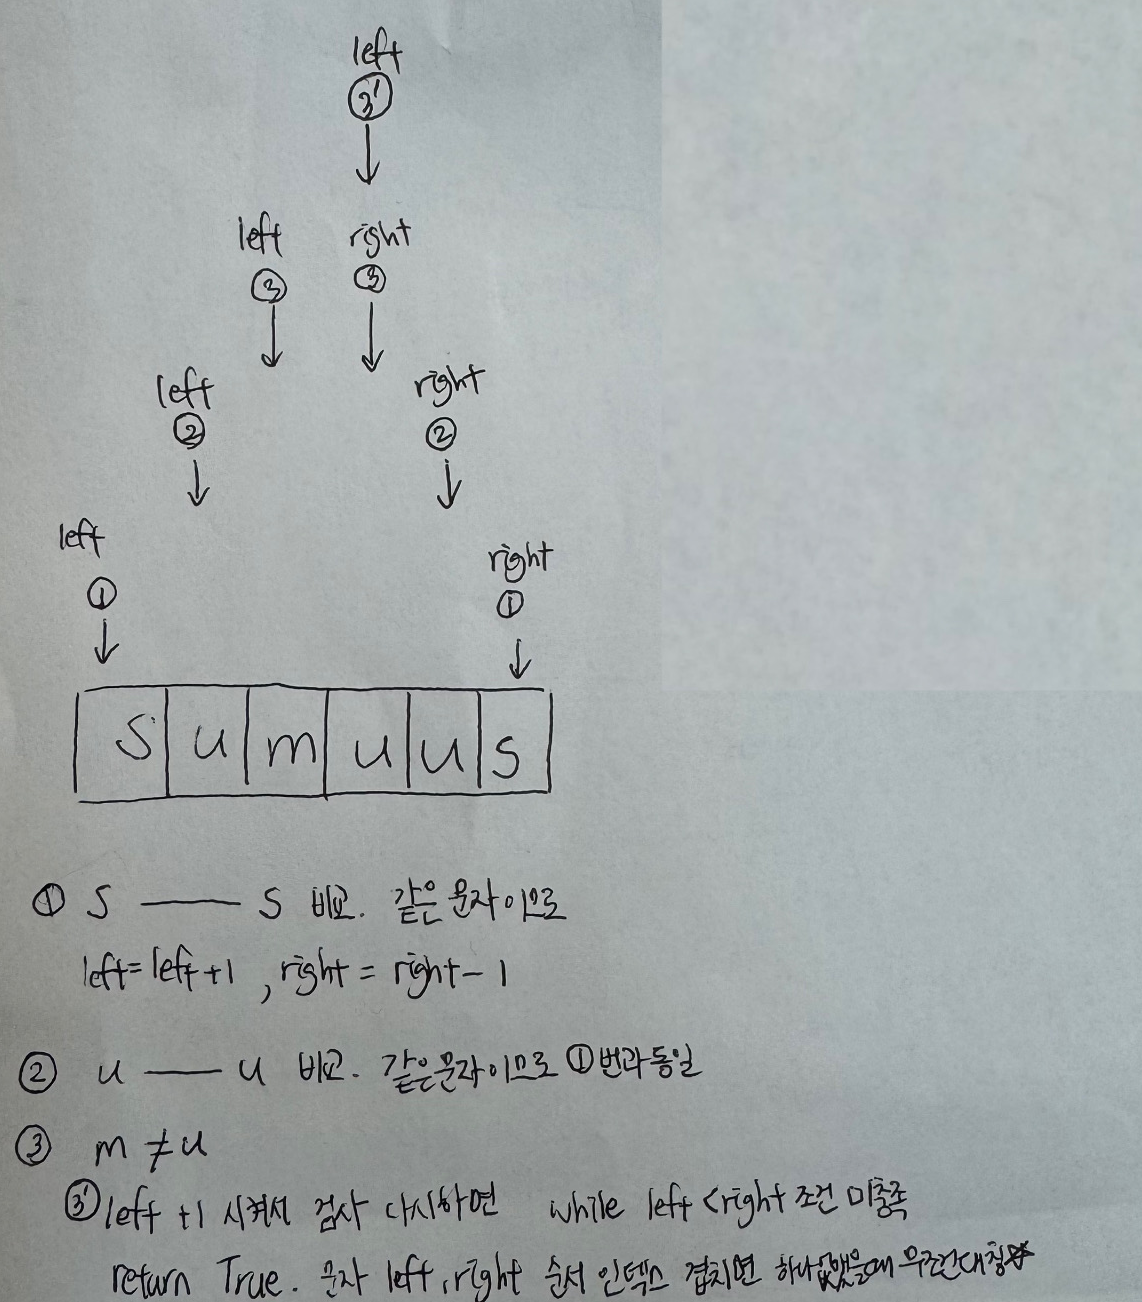 left
3'
left right
③ ③
left right
② ②
left
right
① ①
s u m u u s
① s —— s 비교. 같은 문자이므로
left = left +1 , right = right - 1
② u —— u 비교. 같은 문자이므로 ①번과 동일
③ m ≠ u
3' left +1 시켜서 검사 다시하면 while left < right 조건 미충족
return True. 문자 left, right 순서 인덱스 겹치면 하나 없앴을때 무조건 대칭